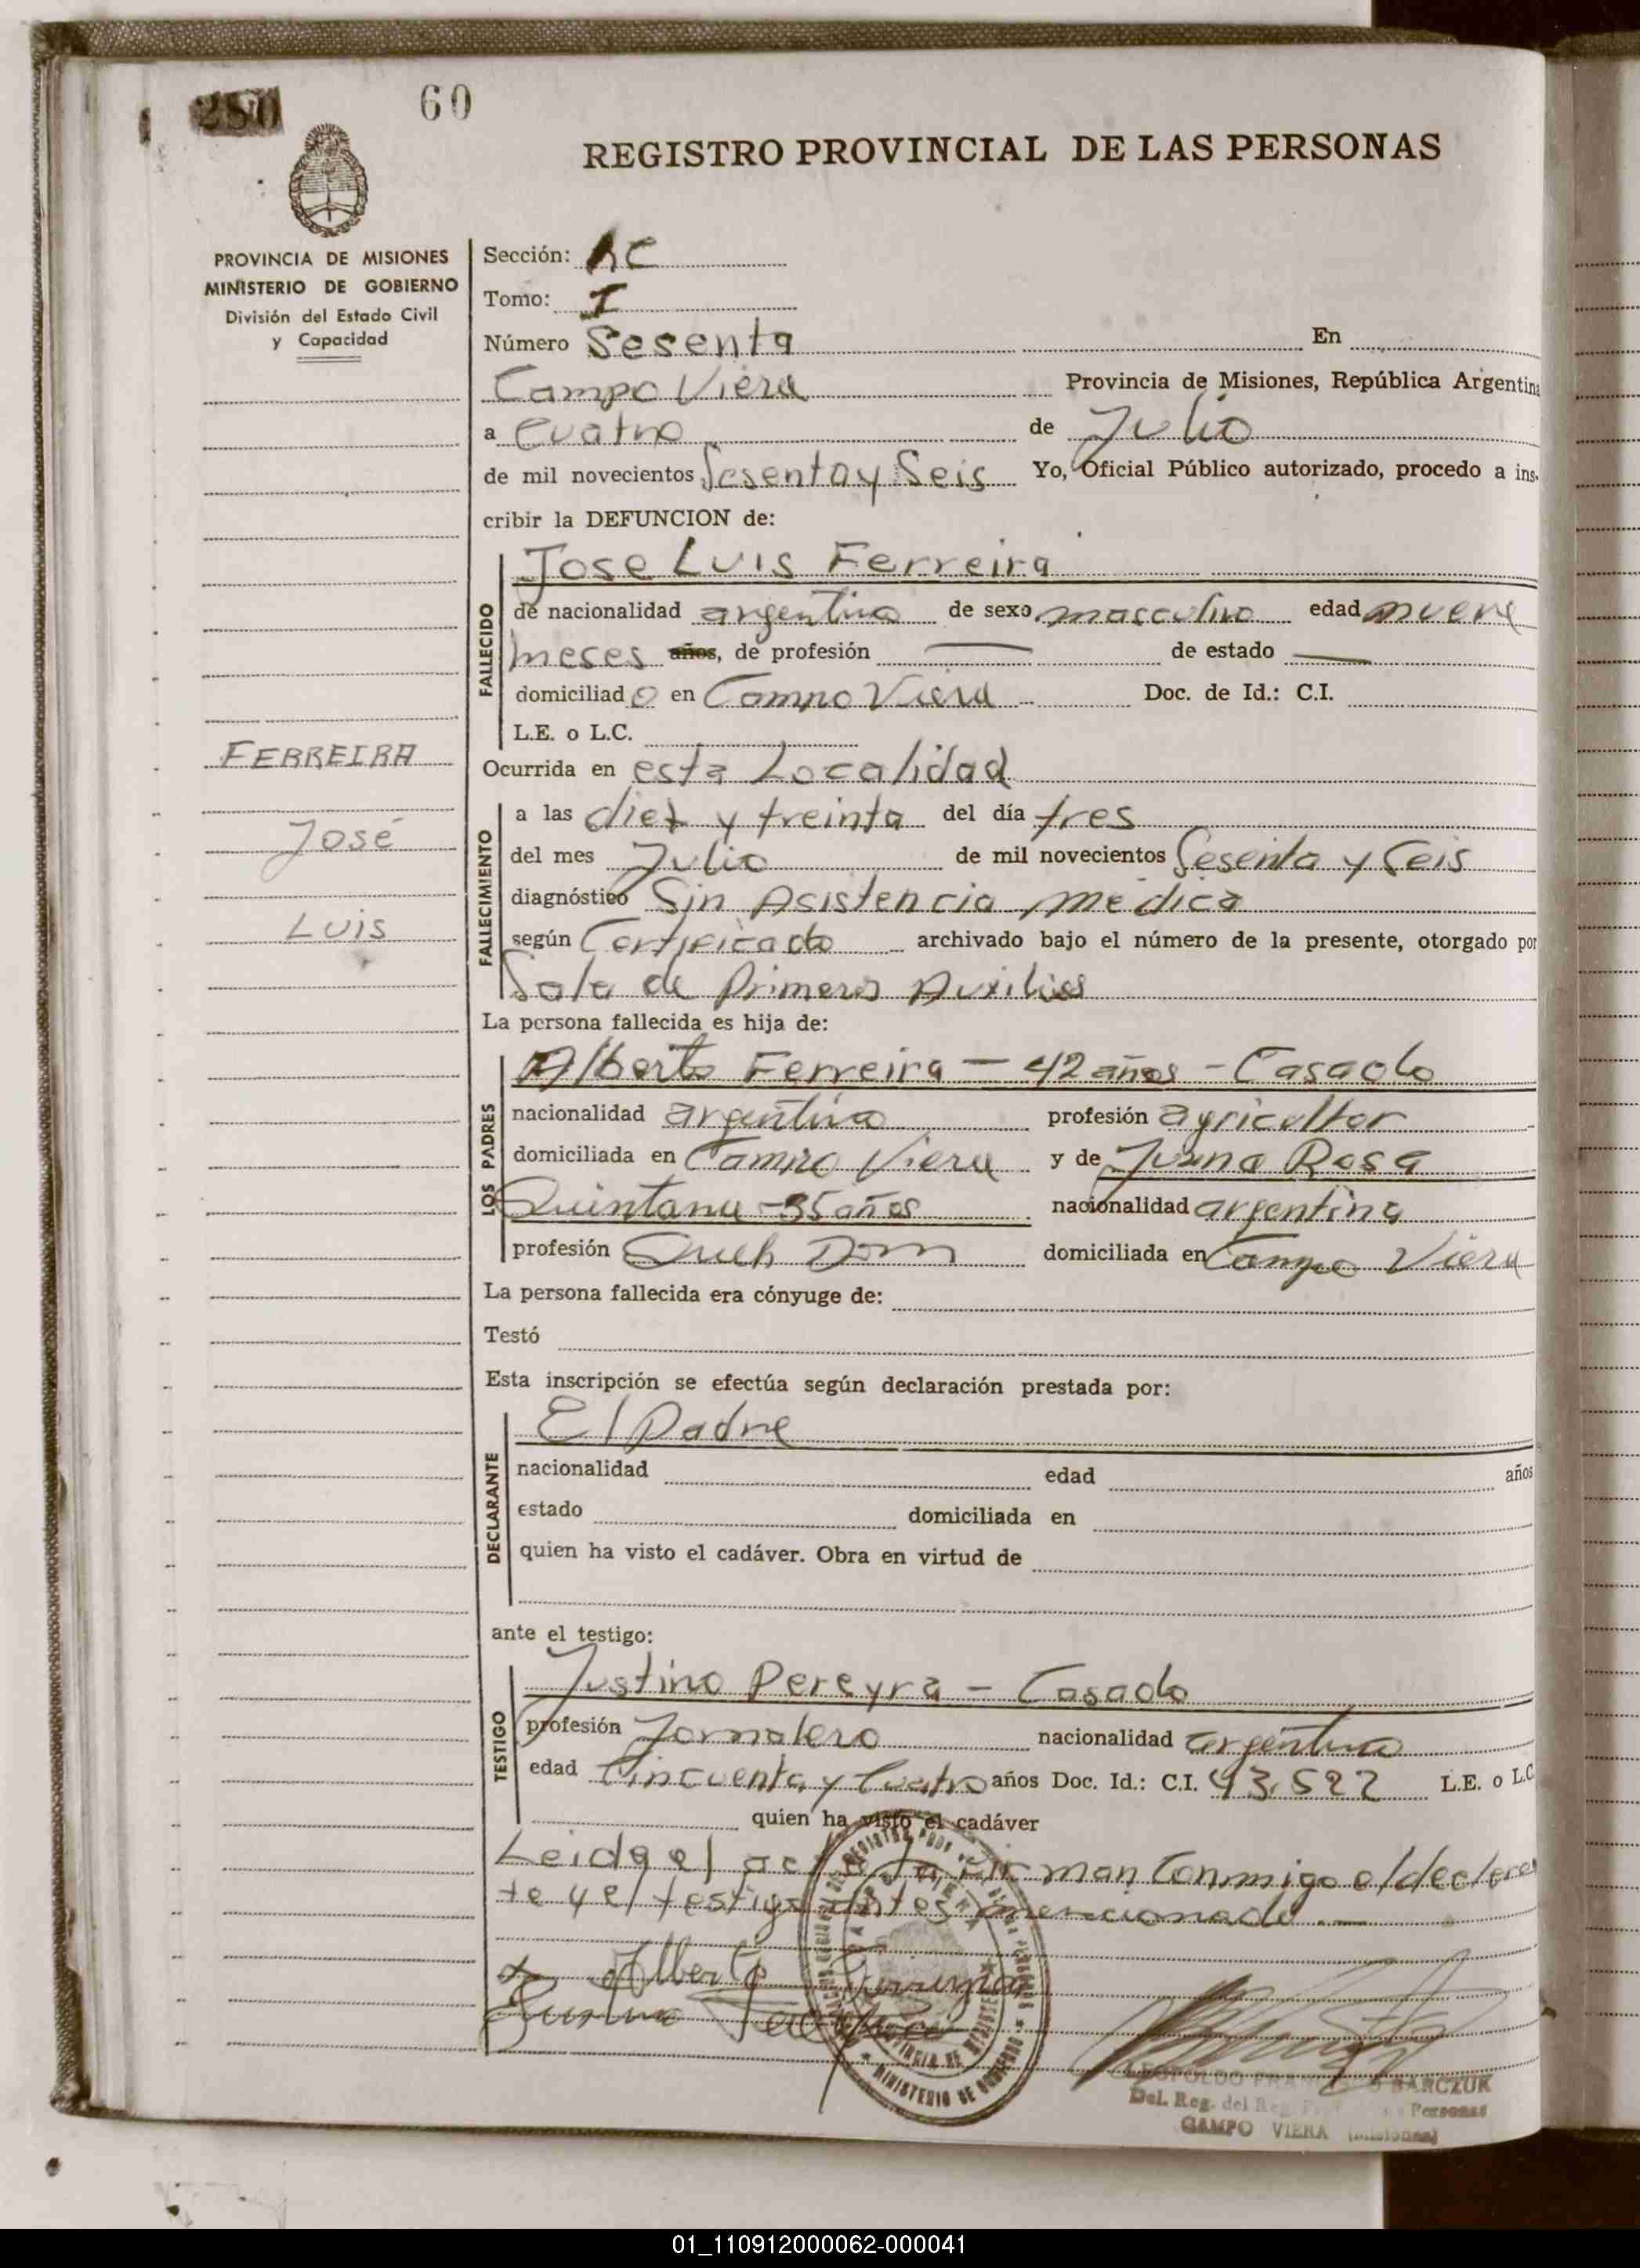 60
REGISTRO PROVINCIAL DE LAS PERSONAS
PROVINCIA DE MISIONES
MINISTERIO DE GOBIERNO
División del Estado Civil
y Capacidad
Sección: AC
Tomo: I
Número Sesenta En
Campo Viera Provincia de Misiones, República Argentina
a Cuatro de Julio
de mil novecientos Sesenta y Seis Yo, Oficial Público autorizado, procedo a ins-
cribir la DEFUNCION de:
FALLECIDO
Jose Luis Ferreira
de nacionalidad argentino de sexo masculino edad nueve
meses años, de profesión — de estado —
domiciliado en Campo Viera Doc. de Id.: C.I.
L.E. o L.C.
FERREIRA
José
Luis
Ocurrida en esta Localidad
FALLECIMIENTO
a las diez y treinta del día tres
del mes Julio de mil novecientos Sesenta y Seis
diagnóstico Sin Asistencia medica
según Certificado archivado bajo el número de la presente, otorgado por
Sala de Primeros Auxilios
La persona fallecida es hija de:
LOS PADRES
Alberto Ferreira — 42 años - Casado
nacionalidad argentino profesión agricultor
domiciliada en Campo Viera y de Juana Rosa
Quintana - 35 años nacionalidad argentina
profesión Queh Dom domiciliada en Campo Viera
La persona fallecida era cónyuge de:
Testó
Esta inscripción se efectúa según declaración prestada por:
DECLARANTE
El Padre
nacionalidad edad años
estado domiciliada en
quien ha visto el cadáver. Obra en virtud de
ante el testigo:
TESTIGO
Justino Pereyra - Casado
profesión Jornalero nacionalidad argentino
edad Cincuenta y Cuatro años Doc. Id.: C.I. 43.522 L.E. o L.C.
quien ha visto el cadáver
Leida el acta la firman Conmigo el declaran
te y el testigo antes mencionado.—
Alberto
MINISTERIO DE GOBIERNO
LEOPOLDO
Del. Reg. del Personas
CAMPO VIERA (Misiones)
01_110912000062-000041